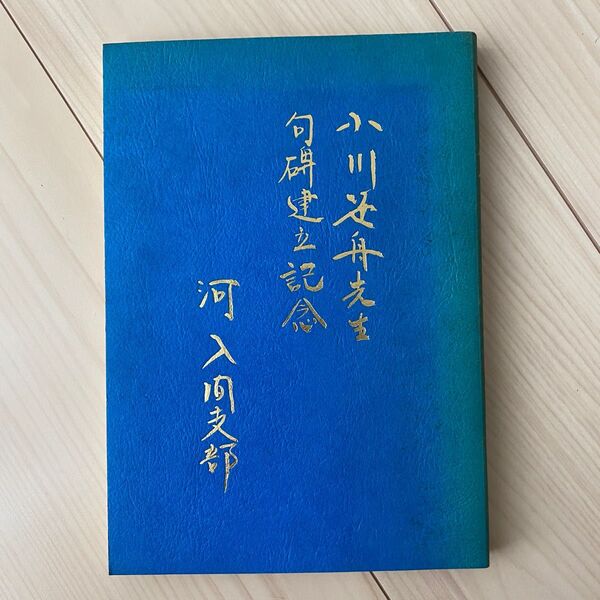 小川笹舟先生
句碑建立記念
河 入間支部